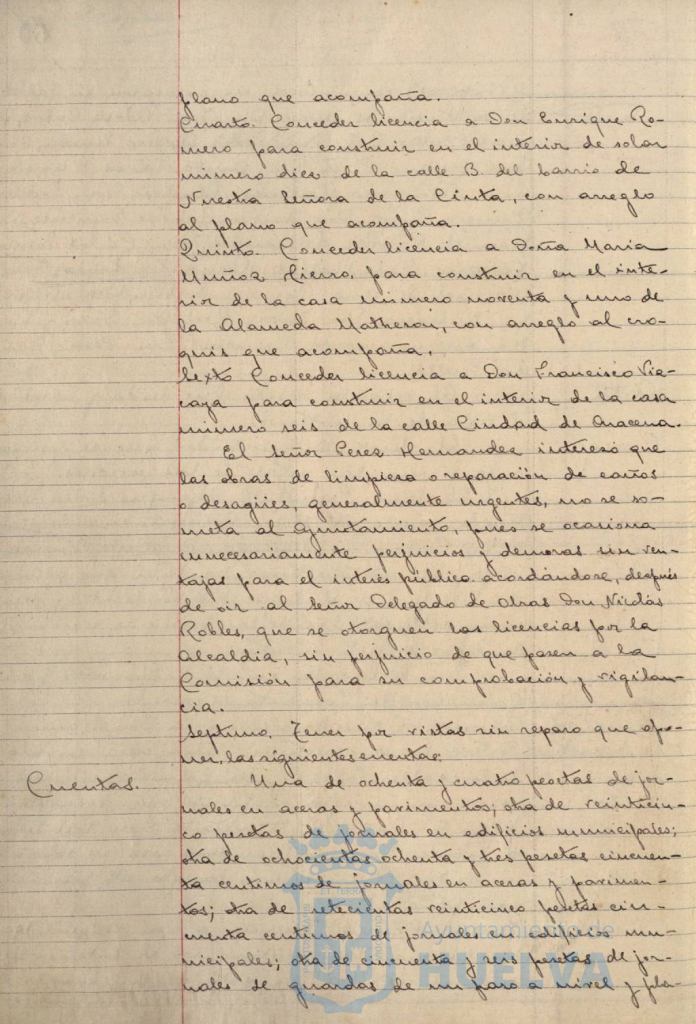 plano que acompaña.
Cuarto. Conceder licencia a Don Enrique Ro-
mero para construir en el interior de solar
número diez de la calle B. del barrio de
Nuestra Señora de la Cinta, con arreglo
al plano que acompaña.
Quinto. Conceder licencia a Doña Maria
Muñoz Hierro, para construir en el inte-
rior de la casa número noventa y uno de
la Alameda Matheron, con arreglo al cro-
quis que acompaña.
Sexto Conceder licencia a Don Francisco Viz-
caya para construir en el interior de la casa
número seis de la calle Ciudad de Aracena.
El Señor Perez Hernandez interesó que
las obras de limpieza o reparación de caños
o desagües, generalmente urgentes, no se so-
meta al Ayuntamiento, pues se ocasiona
innecesariamente perjuicios y demoras sin ven-
tajas para el interés público acordándose, después
de oir al Señor Delegado de Obras Don Nicolás
Robles, que se otorguen las licencias por la
Alcaldia, sin perjuicio de que pasen a la
Comisión para su comprobación y vigilan-
cia.
Septimo. Tener por vistas sin reparo que opo-
ner, las siguientes cuentas:
Cuentas.
Una de ochenta y cuatro pesetas de jor-
nales en aceras y pavimentos; otra de veinticin-
co pesetas de jornales en edificios municipales;
otra de ochocientas ochenta y tres pesetas cincuen-
ta centimos de jornales en aceras y pavimen-
tos; otra de setecientas veinticinco pesetas cin-
cuenta centimos de jornales en edificios mu-
nicipales; otra de cincuenta y seis pesetas de jor-
nales de guardas de un paso a nivel y pla-
Ayuntamiento de
HUELVA